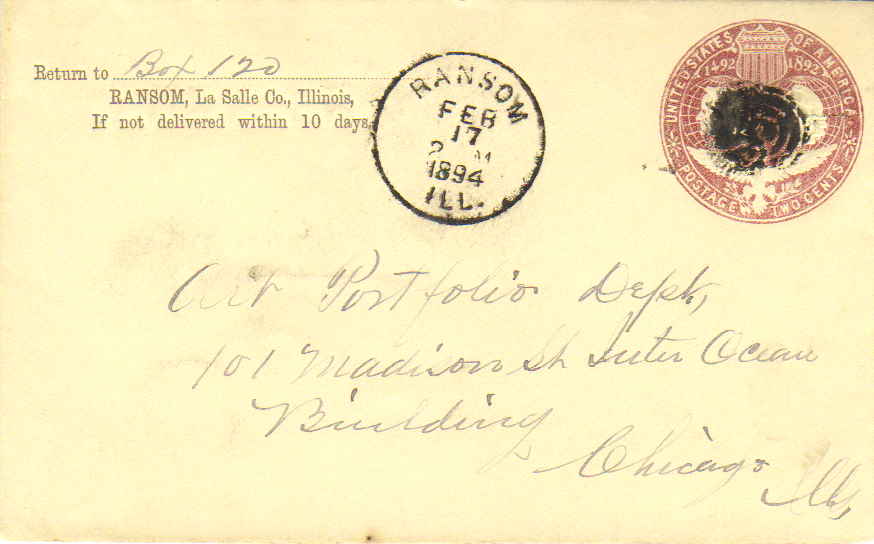 Return to Box 120
RANSOM, La Salle Co., Illinois,
If not delivered within 10 days.
RANSOM
FEB
17
1894
ILL.
UNITED STATES OF AMERICA
1492 1892
POSTAGE TWO CENTS
Art Portfolio Dept,
101 Madison St Inter Ocean
Building
Chicago
Ills,